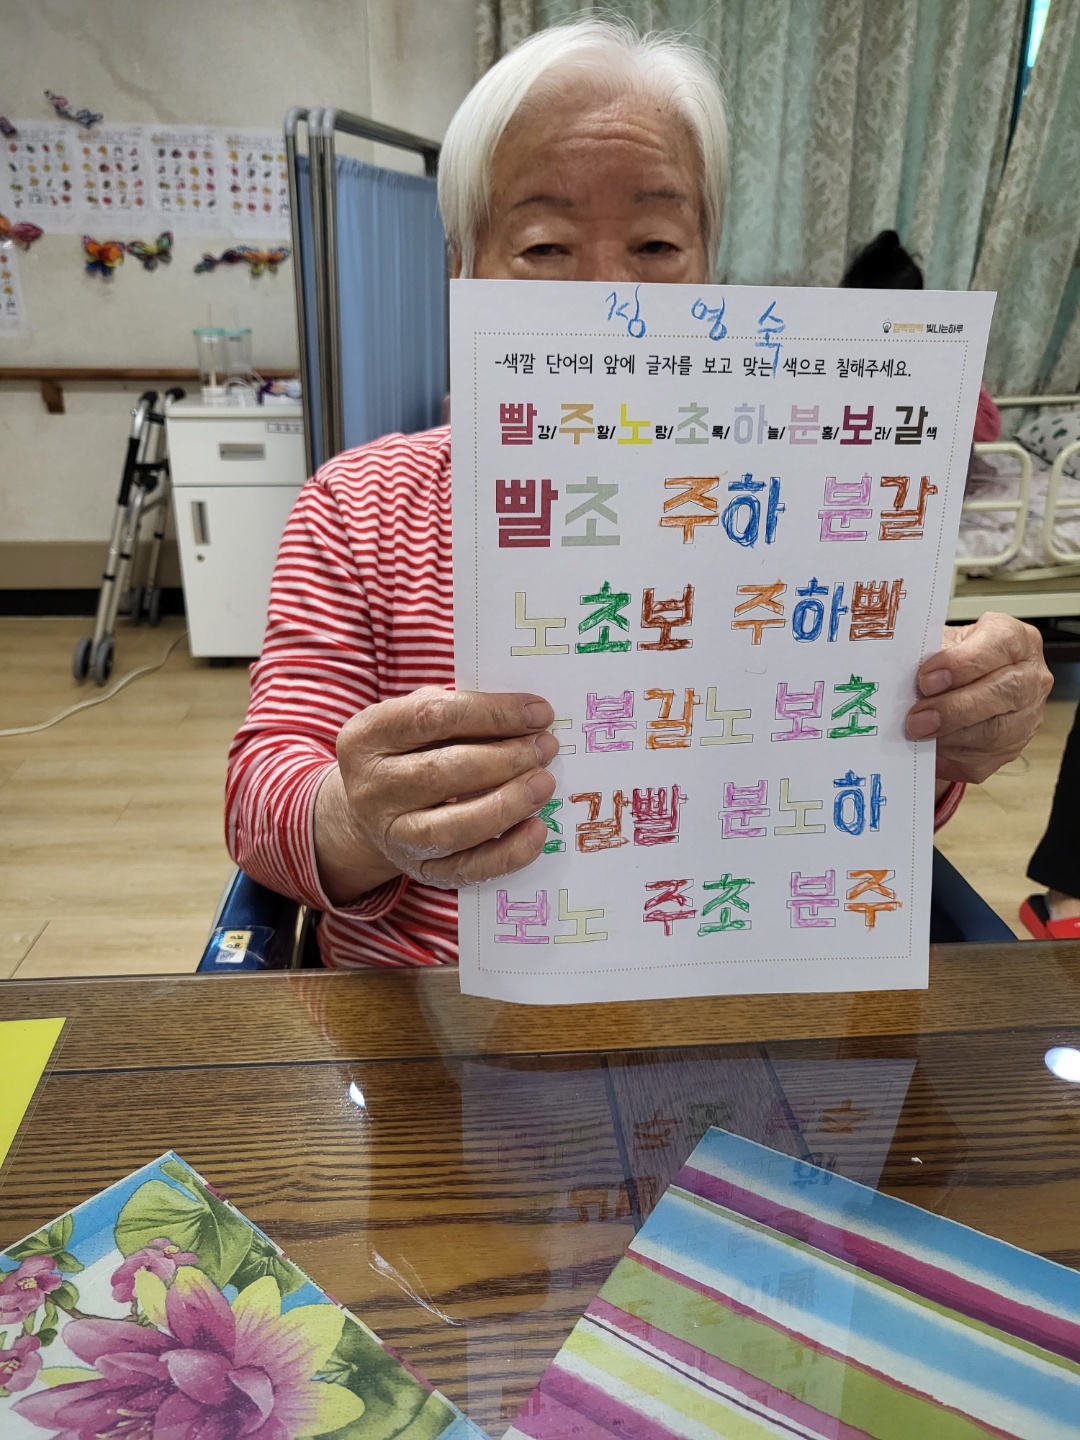 정 영 숙
깜빡깜빡 빛나는하루
-색깔 단어의 앞에 글자를 보고 맞는 색으로 칠해주세요.
빨강/주황/노랑/초록/하늘/분홍/보라/갈색
빨초 주하 분갈
노초보 주하빨
분갈노 보초
초갈빨 분노하
보노 주초 분주